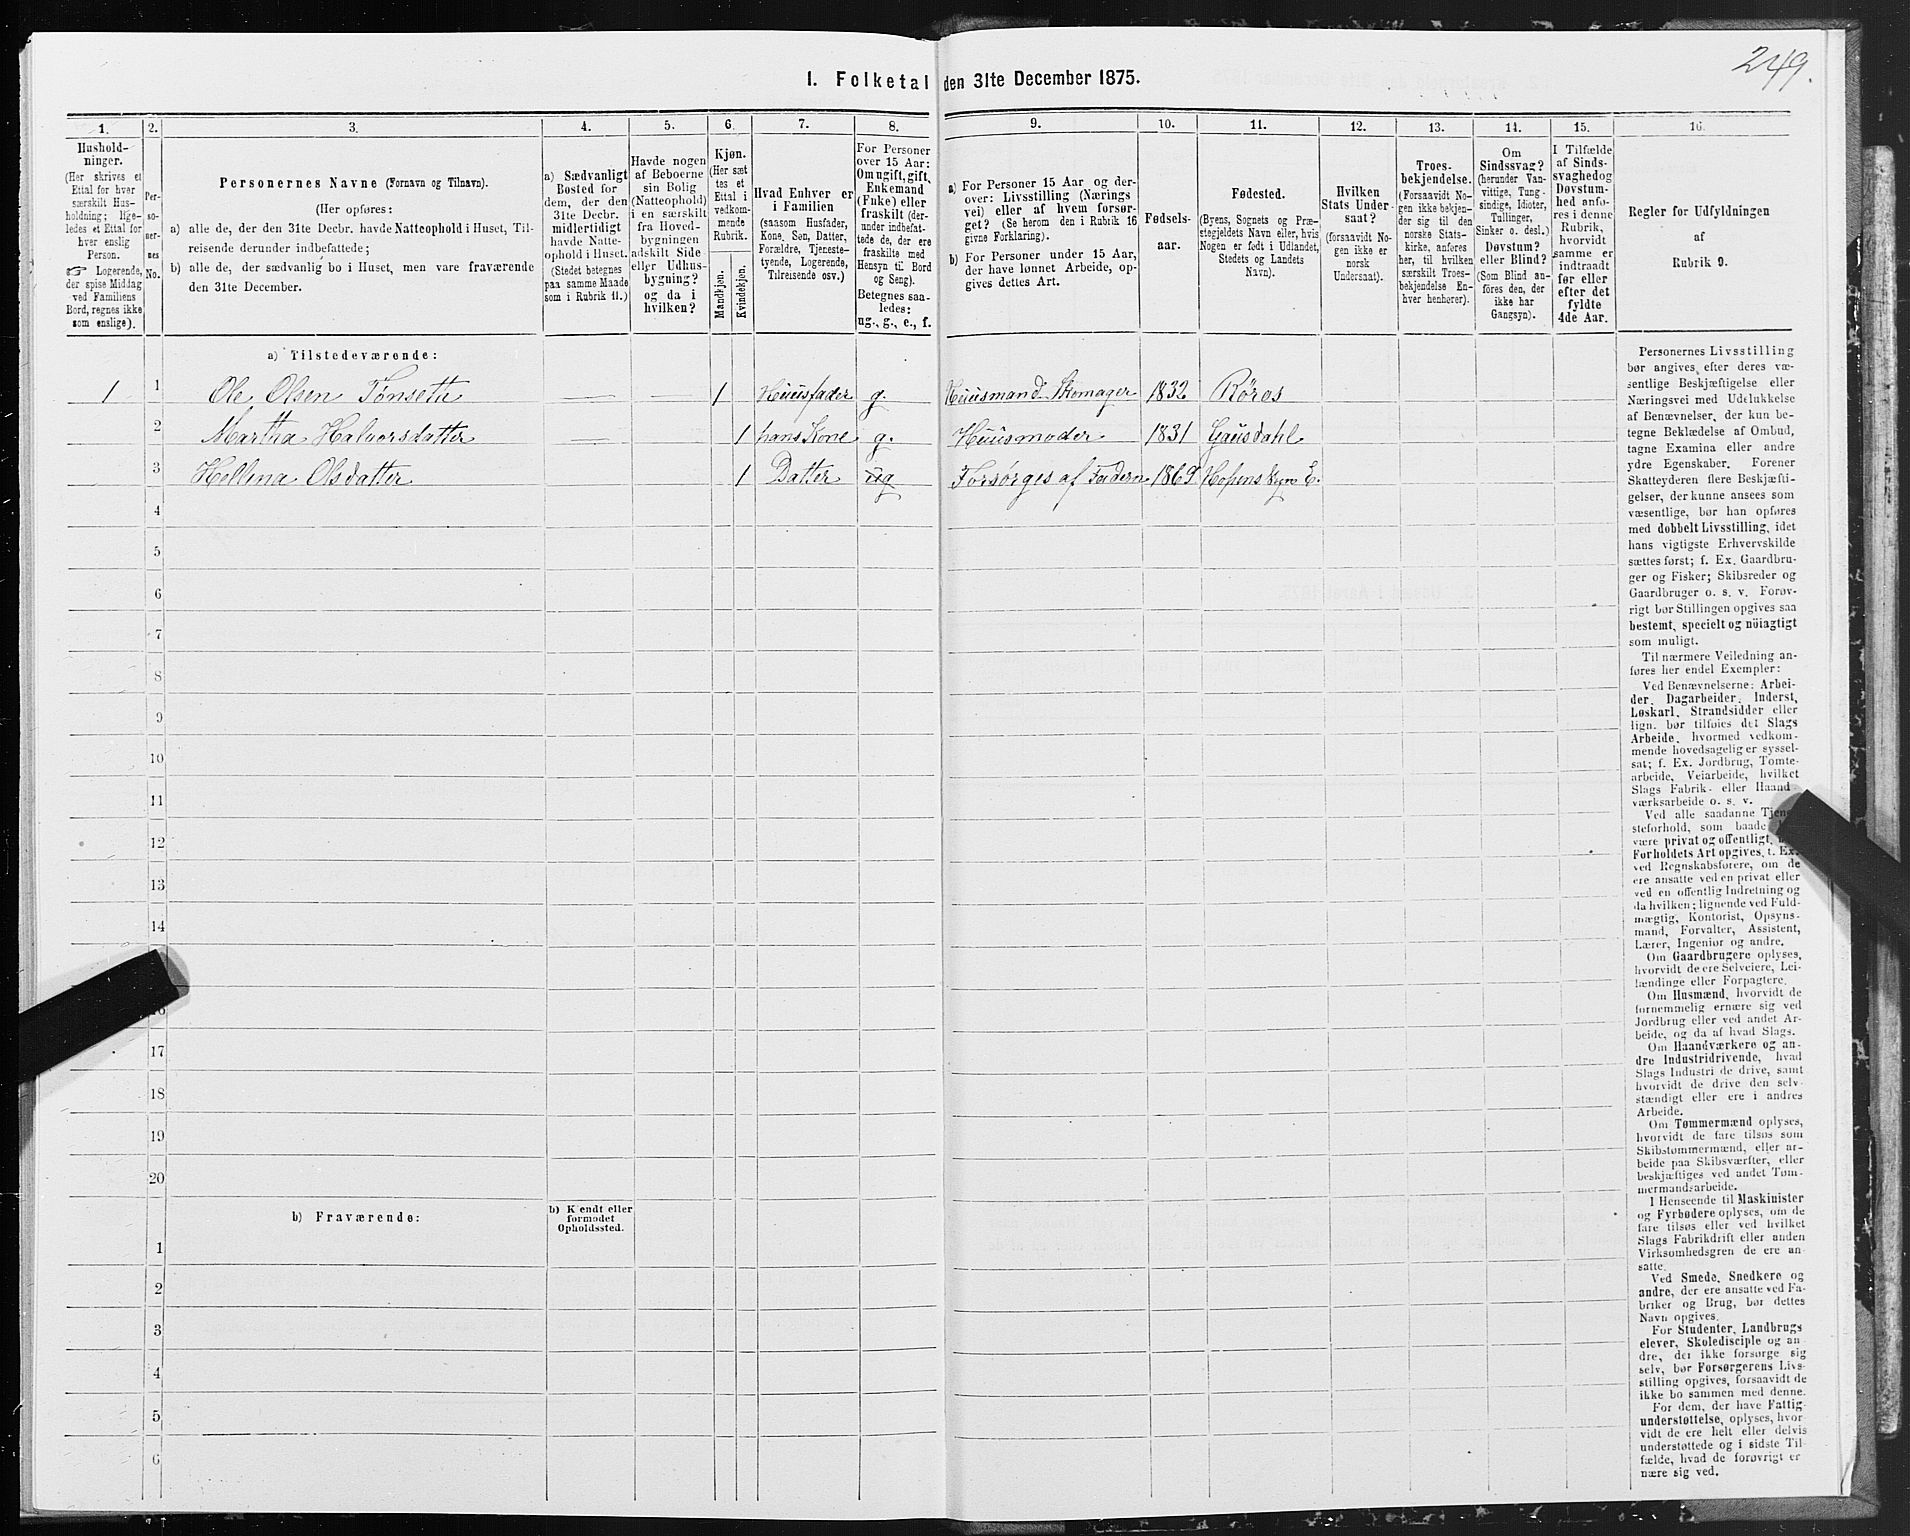 249.
I. Folketal den 31te December 1875.
1. 2. 3. 4. 5. 6. 7. 8. 9. 10. 11. 12. 13. 14. 15. 16.
Hushold-
ninger.
(Her skrives et
Ettal for hver
særskilt Hus-
holdning; lige-
ledes et Ettal for
hver enslig
Person.
☞ Logerende,
der spise Middag
ved Familiens
Bord, regnes ikke
som enslige).
Per-
so-
ner-
nes
No.
Personernes Navne (Fornavn og Tilnavn).
(Her opføres:
a) alle de, der den 31te Decbr. havde Natteophold i Huset, Til-
reisende derunder indbefattede;
b) alle de, der sædvanlig bo i Huset, men vare fraværende
den 31te December.
a) Sædvanligt
Bosted for
dem, der den
31te Decbr.
midlertidigt
havde Natte-
ophold i Huset.
(Stedet betegnes
paa samme Maade
som i Rubrik 11.)
Havde nogen
af Beboerne
sin Bolig
(Natteophold)
i en særskilt
fra Hoved-
bygningen
adskilt Side
eller Udhus-
bygning?
og da i
hvilken?
Kjøn.
(Her sæt
tes et
Ettal i
vedkom-
mende
Rubrik.
Mandkjøn.
Kvindekjøn.
Hvad Enhver er
i Familien
(saasom Husfader,
Kone, Søn, Datter,
Forældre, Tjeneste-
tyende, Logerende,
Tilreisende osv.)
For Personer
over 15 Aar:
Om ugift, gift,
Enkemand
(Enke) eller
fraskilt (der-
under indbefat-
tede de, der ere
fraskilte med
Hensyn til Bord
og Seng).
Betegnes saa-
ledes:
ug., g., e., f.
a) For Personer 15 Aar og der-
over: Livsstilling (Nærings
vei) eller af hvem forsør-
get? (Se herom den i Rubrik 16
givne Forklaring).
b) For Personer under 15 Aar,
der have lønnet Arbeide, op-
gives dettes Art.
Fødsels-
aar.
Fødested.
(Byens, Sognets og Præ-
stegjeldets Navn eller, hvis
Nogen er født i Udlandet,
Stedets og Landets
Navn).
Hvilken
Stats Under-
saat?
(forsaavidt No-
gen ikke er
norsk
Undersaat).
Troes-
bekjendelse.
(Forsaavidt No-
gen ikke bekjen-
der sig til den
norske Stats-
kirke, anføres
her, til hvilken
særskilt Troes-
bekjendelse En-
hver henhører).
Om
Sindssvag?
(herunder Van-
vittige, Tung-
sindige, Idioter,
Tullinger,
Sinker o. desl.)
Døvstum?
eller Blind?
(Som Blind an-
føres den, der
ikke har
Gangsyn).
I Tilfælde
af Sinds-
svaghedog
Døvstum-
hed anfø-
res i denne
Rubrik,
hvorvidt
samme er
indtraadt
før eller
efter det
fyldte
4de Aar.
Regler for Udfyldningen
af
Rubrik 9.
a) Tilstedeværende:
1 1 Ole Olsen Tønseth — — 1 Huusfader g. Huusmand Skomager 1832 Röros
2 Martha Halvorsdatter — 1 hans Kone g. Huusmoder 1831 Gausdahl
3 Hellena Olsdatter 1 Datter ug Forsørges af Faderen 1869
4
5
6
7
8
9
10
11
12
13
14
16
17
18
19
20
b) Fraværende:
b) Kjendt eller
formodet
Opholdssted.
1
2
3
4
5
6
Personernes Livsstilling
bør angives efter deres væ-
sentlige Beskjæftigelse eller
Næringsvei med Udelukkelse
af Benævnelser, der kun be-
tegne Beklædelse af Ombud,
tagne Examina eller andre
ydre Egenskaber. Forener
Skatteyderen flere Beskjæfti-
gelser, der kunne ansees som
væsentlige, bør han opføres
med dobbelt Livsstilling, idet
hans vigtigste Erhvervskilde
sættes først; f. Ex. Gaardbru-
ger og Fisker; Skibsreder og
Gaardbruger o. s. v. Forøv-
rigt bør Stillingen opgives saa
bestemt, specielt og nöiagtigt
som muligt.
Til nærmere Veiledning an-
føres her endel Exempler:
Ved Benævnelserne: Arbei-
der, Dagarbeider, Inderst,
Løskarl, Strandsidder eller
lign. bør tilføies det Slags
Arbeide, hvormed vedkom-
mende hovedsagelig er syssel-
sat; f. Ex. Jordbrug, Tomte-
arbeide, Veiarbeide, hvilket
Slags Fabrik- eller Haand-
værksarbeide o. s. v.
Ved alle saadanne Tjene-
steforhold, som baade
være privat og offentligt,
Forholdets Art opgives, f. Ex.
ved Regnskabsførere, om de
ere ansatte ved en privat eller
ved en offentlig Indretning og
da hvilken; lignende ved Fuld-
mægtig, Kontorist, Opsyns-
mand, Forvalter, Assistent,
Lærer, Ingeniør og andre.
Om Gaardbrugere oplyses,
hvorvidt de ere Selveiere, Lei-
lændinge eller Forpagtere.
Om Husmænd, hvorvidt de
fornemmelig ernære sig ved
Jordbrug eller ved andet Ar-
beide, og da af hvad Slags.
Om Haandværkere og an-
dre Industridrivende, hvad
Slags Industri de drive, samt
hvorvidt de drive den selv-
stændigt eller ere i andres
Arbeide.
Om Tømmermænd oplyses,
hvorvidt de fare tilsøs som
Skibstømmermænd, eller ar-
beide paa Skibsværfter, eller
beskjæftiges ved andet Tøm-
mermandsarbeide.
I Henseende til Maskinister
og Fyrbødere oplyses, om de
fare tilsøs eller ved hvilket
Slags Fabrikdrift eller anden
Virksomhedsgren de ere an-
satte.
Ved Smede, Snedkere og
andre, der ere ansatte ved Fa-
briker og Brug, bør dettes
Navn opgives.
For Studenter, Landbrugs
elever, Skoledisciple og an-
dre, der ikke forsørge sig
selv, bør Forsørgerens Livs-
stilling opgives, forsaavidt de
ikke bo sammen med denne.
For dem, der have Fattig-
understøttelse, oplyses, hvor-
vidt de ere helt eller delvis
understøttede og i sidste Til-
fælde, hvad de forøvrigt er
nære sig ved.